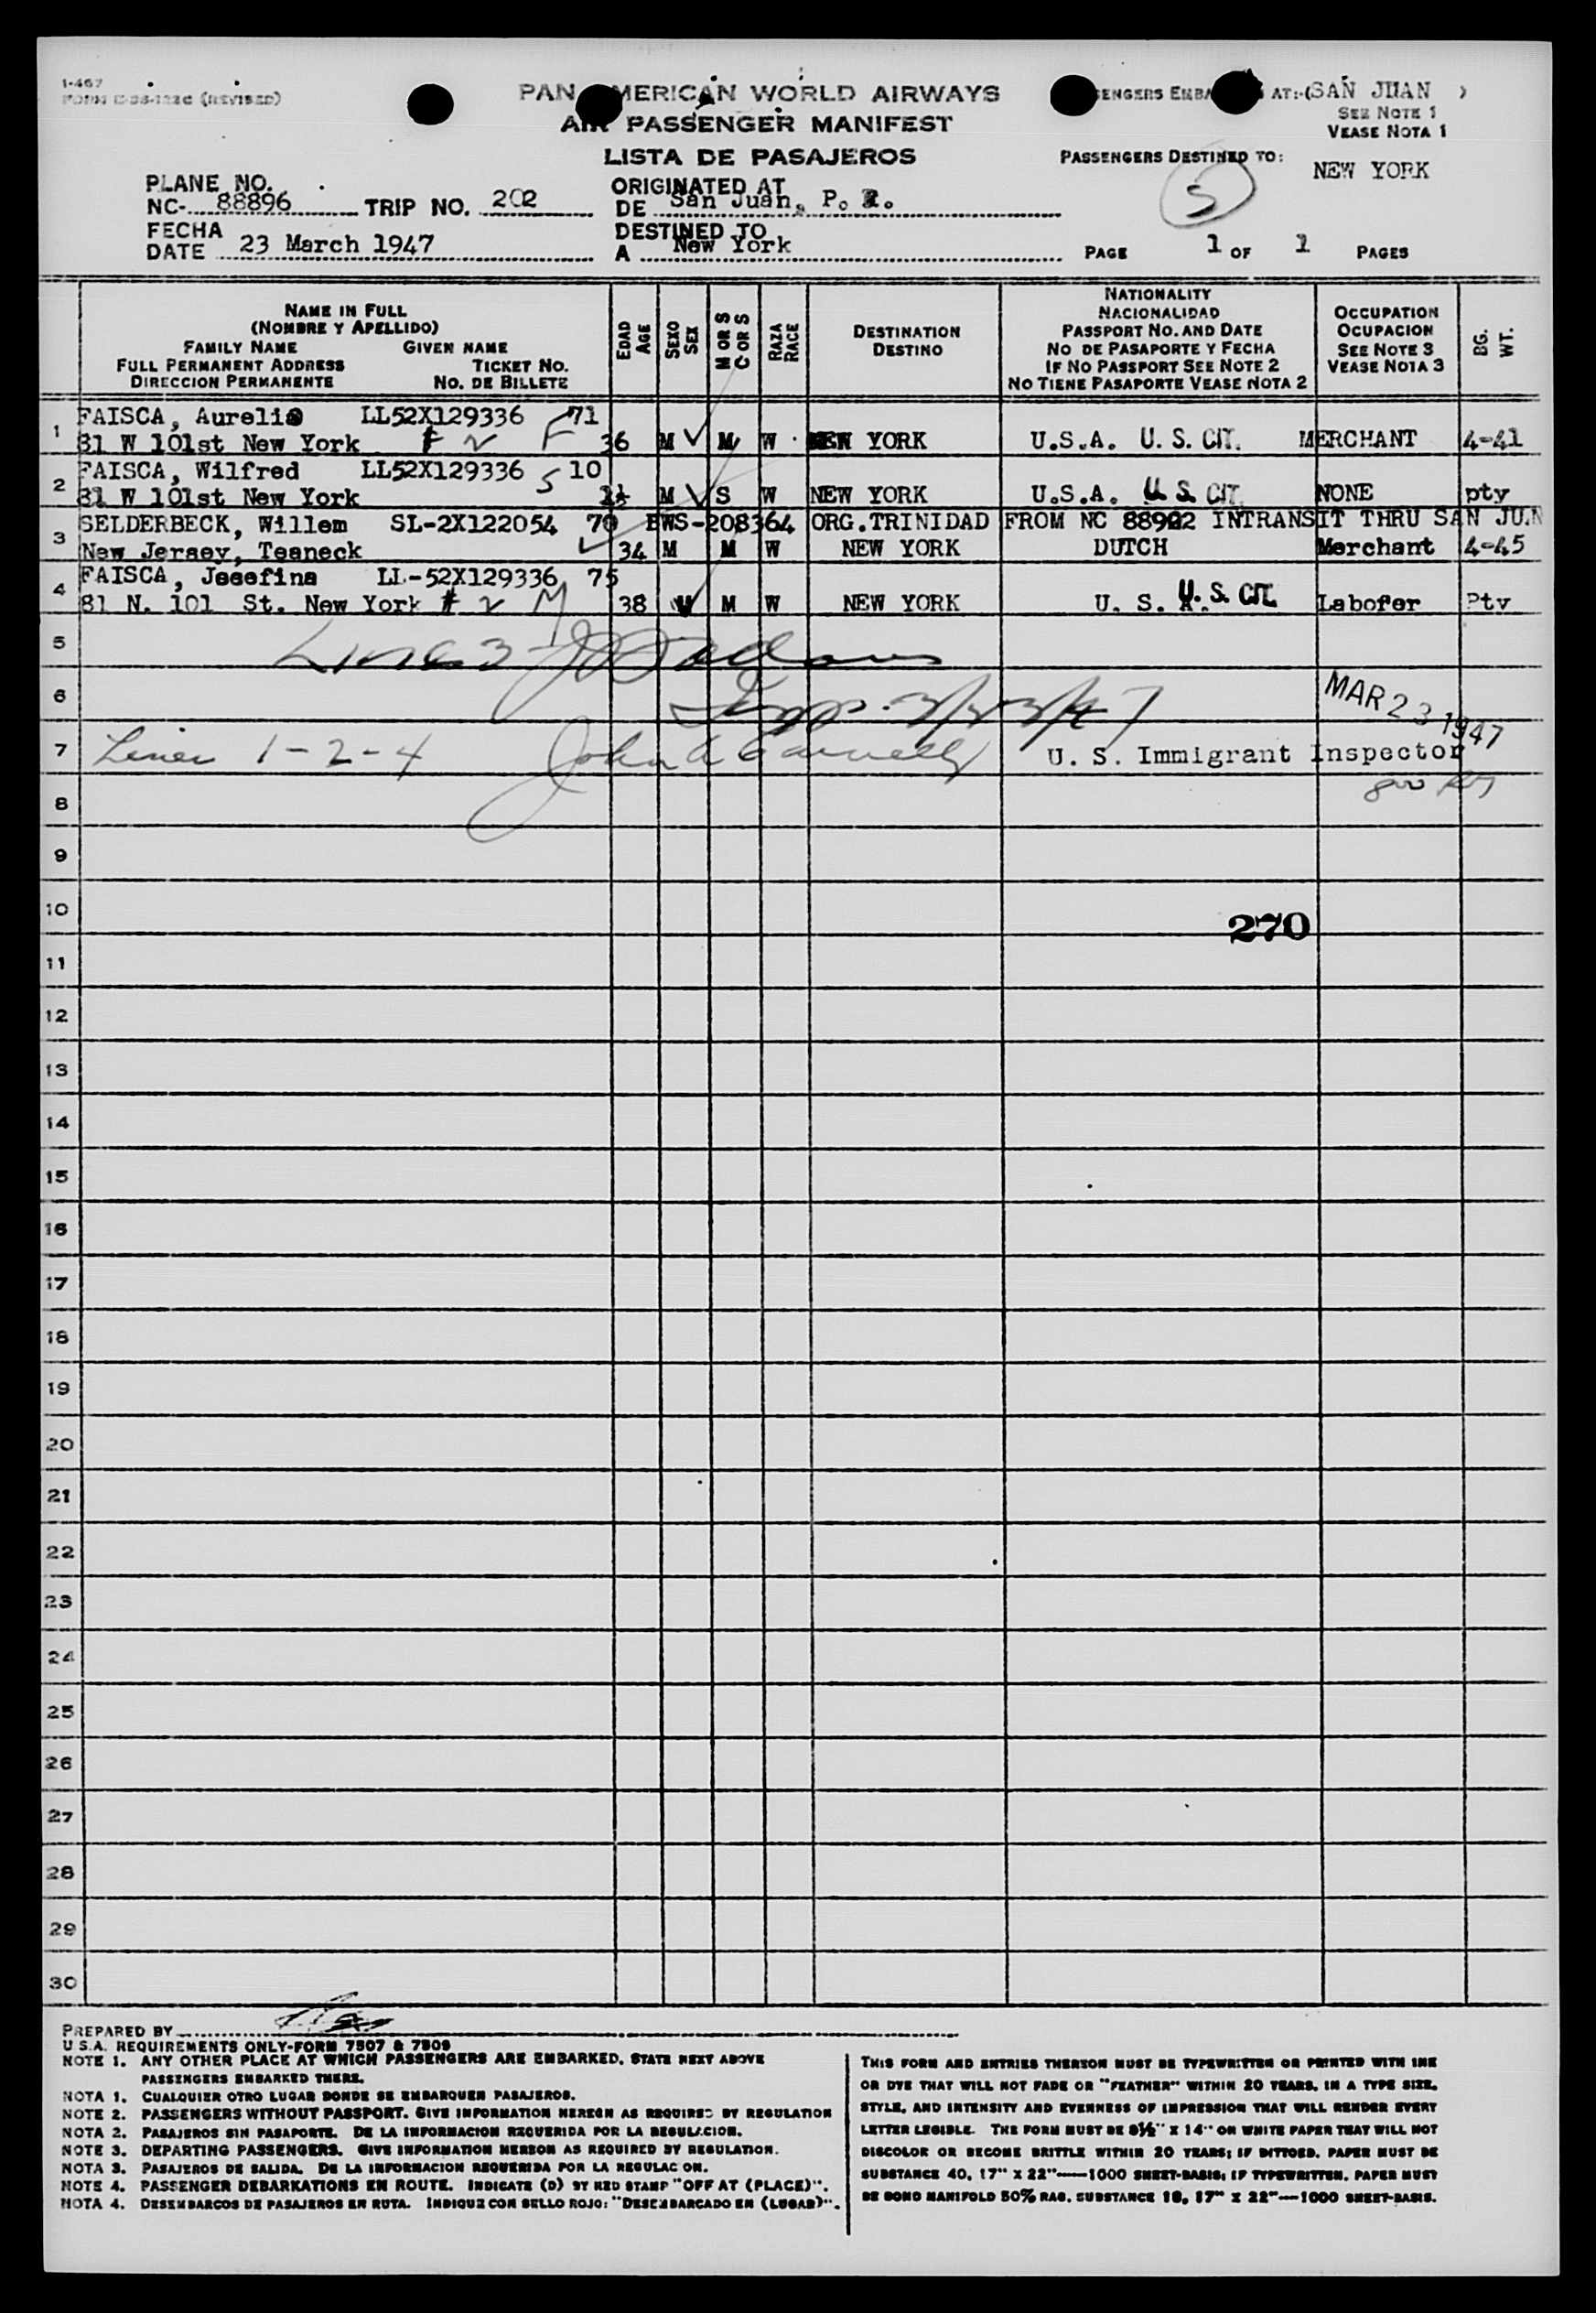 1-467
FORM (REVISED)
PAN AMERICAN WORLD AIRWAYS
AIR PASSENGER MANIFEST
LISTA DE PASAJEROS
AT:-(SAN JUAN )
SEE NOTE 1
VEASE NOTA 1
PASSENGERS DESTINED TO:
NEW YORK
5
PLANE NO.
NC- 88896 TRIP NO. 202
ORIGINATED AT
DE San Juan, P. R.
FECHA
DATE 23 March 1947
DESTINED TO
A New York
PAGE 1 OF 1 PAGES
NAME IN FULL
(NOMBRE Y APELLIDO)
FAMILY NAME GIVEN NAME
FULL PERMANENT ADDRESS TICKET NO.
DIRECCION PERMANENTE NO. DE BILLETE
EDAD
AGE
SEXO
SEX
M OR S
C OR S
RAZA
RACE
DESTINATION
DESTINO
NATIONALITY
NACIONALIDAD
PASSPORT NO. AND DATE
NO DE PASAPORTE Y FECHA
IF NO PASSPORT SEE NOTE 2
NO TIENE PASAPORTE VEASE NOTA 2
OCCUPATION
OCUPACION
SEE NOTE 3
VEASE NOTA 3
BG.
WT.
1 FAISCA, Aurelio LL52X129336 F 71
81 W 101st New York # 2 36 M M W NEW YORK U.S.A. U. S. CIT. MERCHANT 4-41
2 FAISCA, Wilfred LL52X129336 S 10
81 W 101st New York M S W NEW YORK U.S.A. U. S. CIT. NONE pty
3 SELDERBECK, Willem SL-2X122054 70 EWS-208364 ORG.TRINIDAD FROM NC 88902 INTRANSIT THRU SAN JUN
New Jersey, Teaneck 34 M M W NEW YORK DUTCH Merchant 4-45
4 FAISCA, Josefina LL-52X129336 75
81 N. 101 St. New York # 2 M 38 M W NEW YORK U. S. A. U. S. CIT. Laborer Pty
5 Line 3
6 Insp. 3/23/47 MAR 23 1947
7 Lines 1-2-4 John A U. S. Immigrant Inspector
8
9
10 270
11
12
13
14
15
16
17
18
19
20
21
22
23
24
25
26
27
28
29
30
PREPARED BY
U.S.A. REQUIREMENTS ONLY-FORM 7507 & 7509
NOTE 1. ANY OTHER PLACE AT WHICH PASSENGERS ARE EMBARKED, STATE NEXT ABOVE
PASSENGERS EMBARKED THERE.
NOTA 1. CUALQUIER OTRO LUGAR DONDE SE EMBARQUEN PASAJEROS.
NOTE 2. PASSENGERS WITHOUT PASSPORT. GIVE INFORMATION HEREON AS REQUIRED BY REGULATION
NOTA 2. PASAJEROS SIN PASAPORTE. DE LA INFORMACION REQUERIDA POR LA REGULACION.
NOTE 3. DEPARTING PASSENGERS. GIVE INFORMATION HEREON AS REQUIRED BY REGULATION.
NOTA 3. PASAJEROS DE SALIDA. DE LA INFORMACION REQUERIDA POR LA REGULACION.
NOTE 4. PASSENGER DEBARKATIONS EN ROUTE. INDICATE (D) BY RED STAMP "OFF AT (PLACE)".
NOTA 4. DESEMBARCOS DE PASAJEROS EN RUTA. INDIQUE CON SELLO ROJO: "DESEMBARCADO EN (LUGAR)".
THIS FORM AND ENTRIES THEREON MUST BE TYPEWRITTEN OR PRINTED WITH INK
OR DYE THAT WILL NOT FADE OR "FEATHER" WITHIN 20 YEARS, IN A TYPE SIZE,
STYLE, AND INTENSITY AND EVENNESS OF IMPRESSION THAT WILL RENDER EVERY
LETTER LEGIBLE. THE FORM MUST BE 8½" X 14" ON WHITE PAPER THAT WILL NOT
DISCOLOR OR BECOME BRITTLE WITHIN 20 YEARS; IF DITTOED, PAPER MUST BE
SUBSTANCE 40, 17" X 22"——1000 SHEET-BASIS; IF TYPEWRITTEN, PAPER MUST
BE BOND MANIFOLD 50% RAG, SUBSTANCE 18, 17" X 22"—1000 SHEET-BASIS.